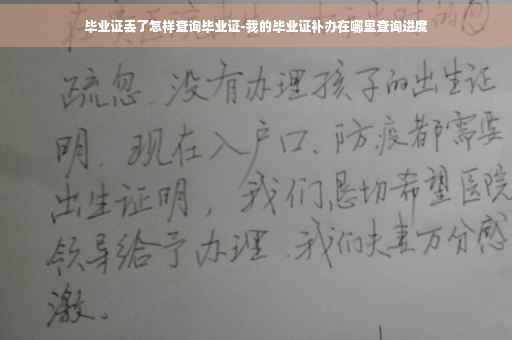 毕业证丢了怎样查询毕业证-我的毕业证补办在哪里查询进度
疏忽.没有办理孩子的出生证
明.现在入户口、防疫都需要
出生证明，我们恳切希望医院
领导给予办理.我们夫妻万分感
激。